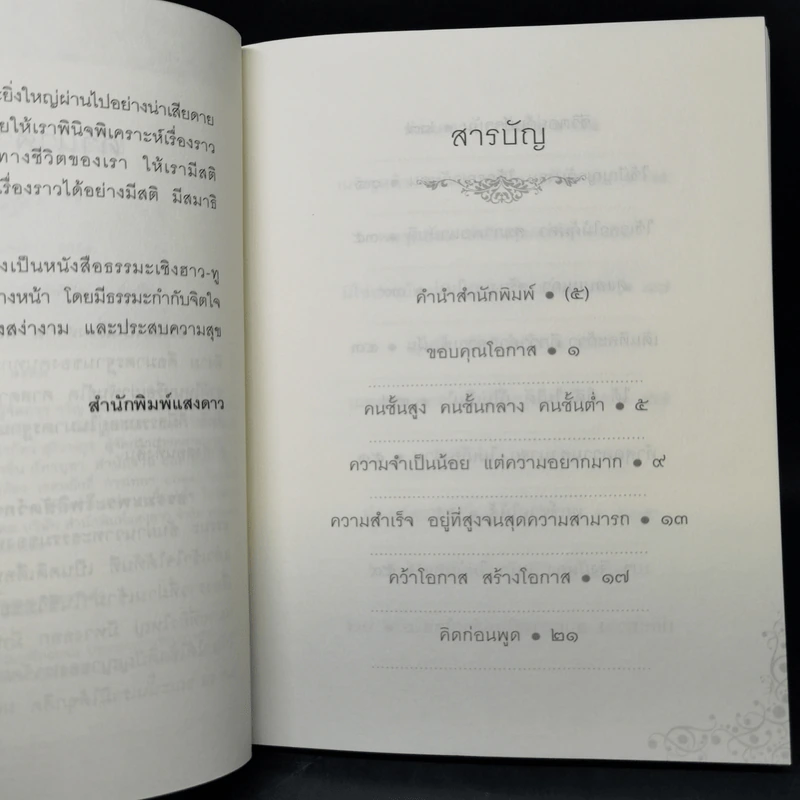 ยิ่งใหญ่ผ่านไปอย่างน่าเสียดาย
ให้เราพินิจพิเคราะห์เรื่องราว
ทางชีวิตของเรา ให้เรามีสติ
เรื่องราวได้อย่างมีสติ มีสมาธิ
เป็นหนังสือธรรมะเชิงฮาว-ทู
างหน้า โดยมีธรรมะกำกับจิตใจ
งสง่างาม และประสบความสุข
สำนักพิมพ์แสงดาว
สารบัญ
คำนำสำนักพิมพ์ • (๕)
ขอบคุณโอกาส • ๑
คนชั้นสูง คนชั้นกลาง คนชั้นต่ำ • ๕
ความจำเป็นน้อย แต่ความอยากมาก • ๙
ความสำเร็จ อยู่ที่สูงจนสุดความสามารถ • ๑๓
คว้าโอกาส สร้างโอกาส • ๑๗
คิดก่อนพูด • ๒๑